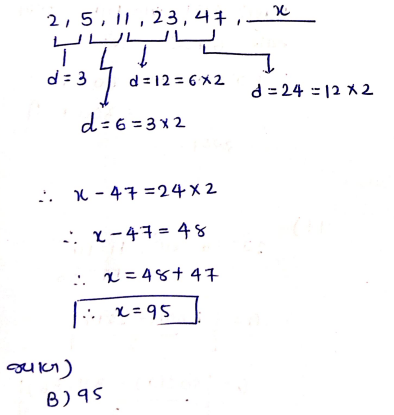 2, 5, 11, 23, 47, x
d = 3 d = 12 = 6 × 2 d = 24 = 12 × 2
d = 6 = 3 × 2
∴ x - 47 = 24 × 2
∴ x - 47 = 48
∴ x = 48 + 47
∴ x = 95
જવાબ)
B) 95